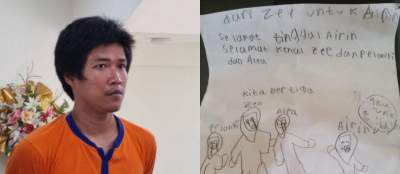 dari Zee untuk Airin
Selamat tinggal Airin
Selamat kenal Zee dan Pelangi
dan Alfa
kita bertiga
Zee
Alfa
Airin